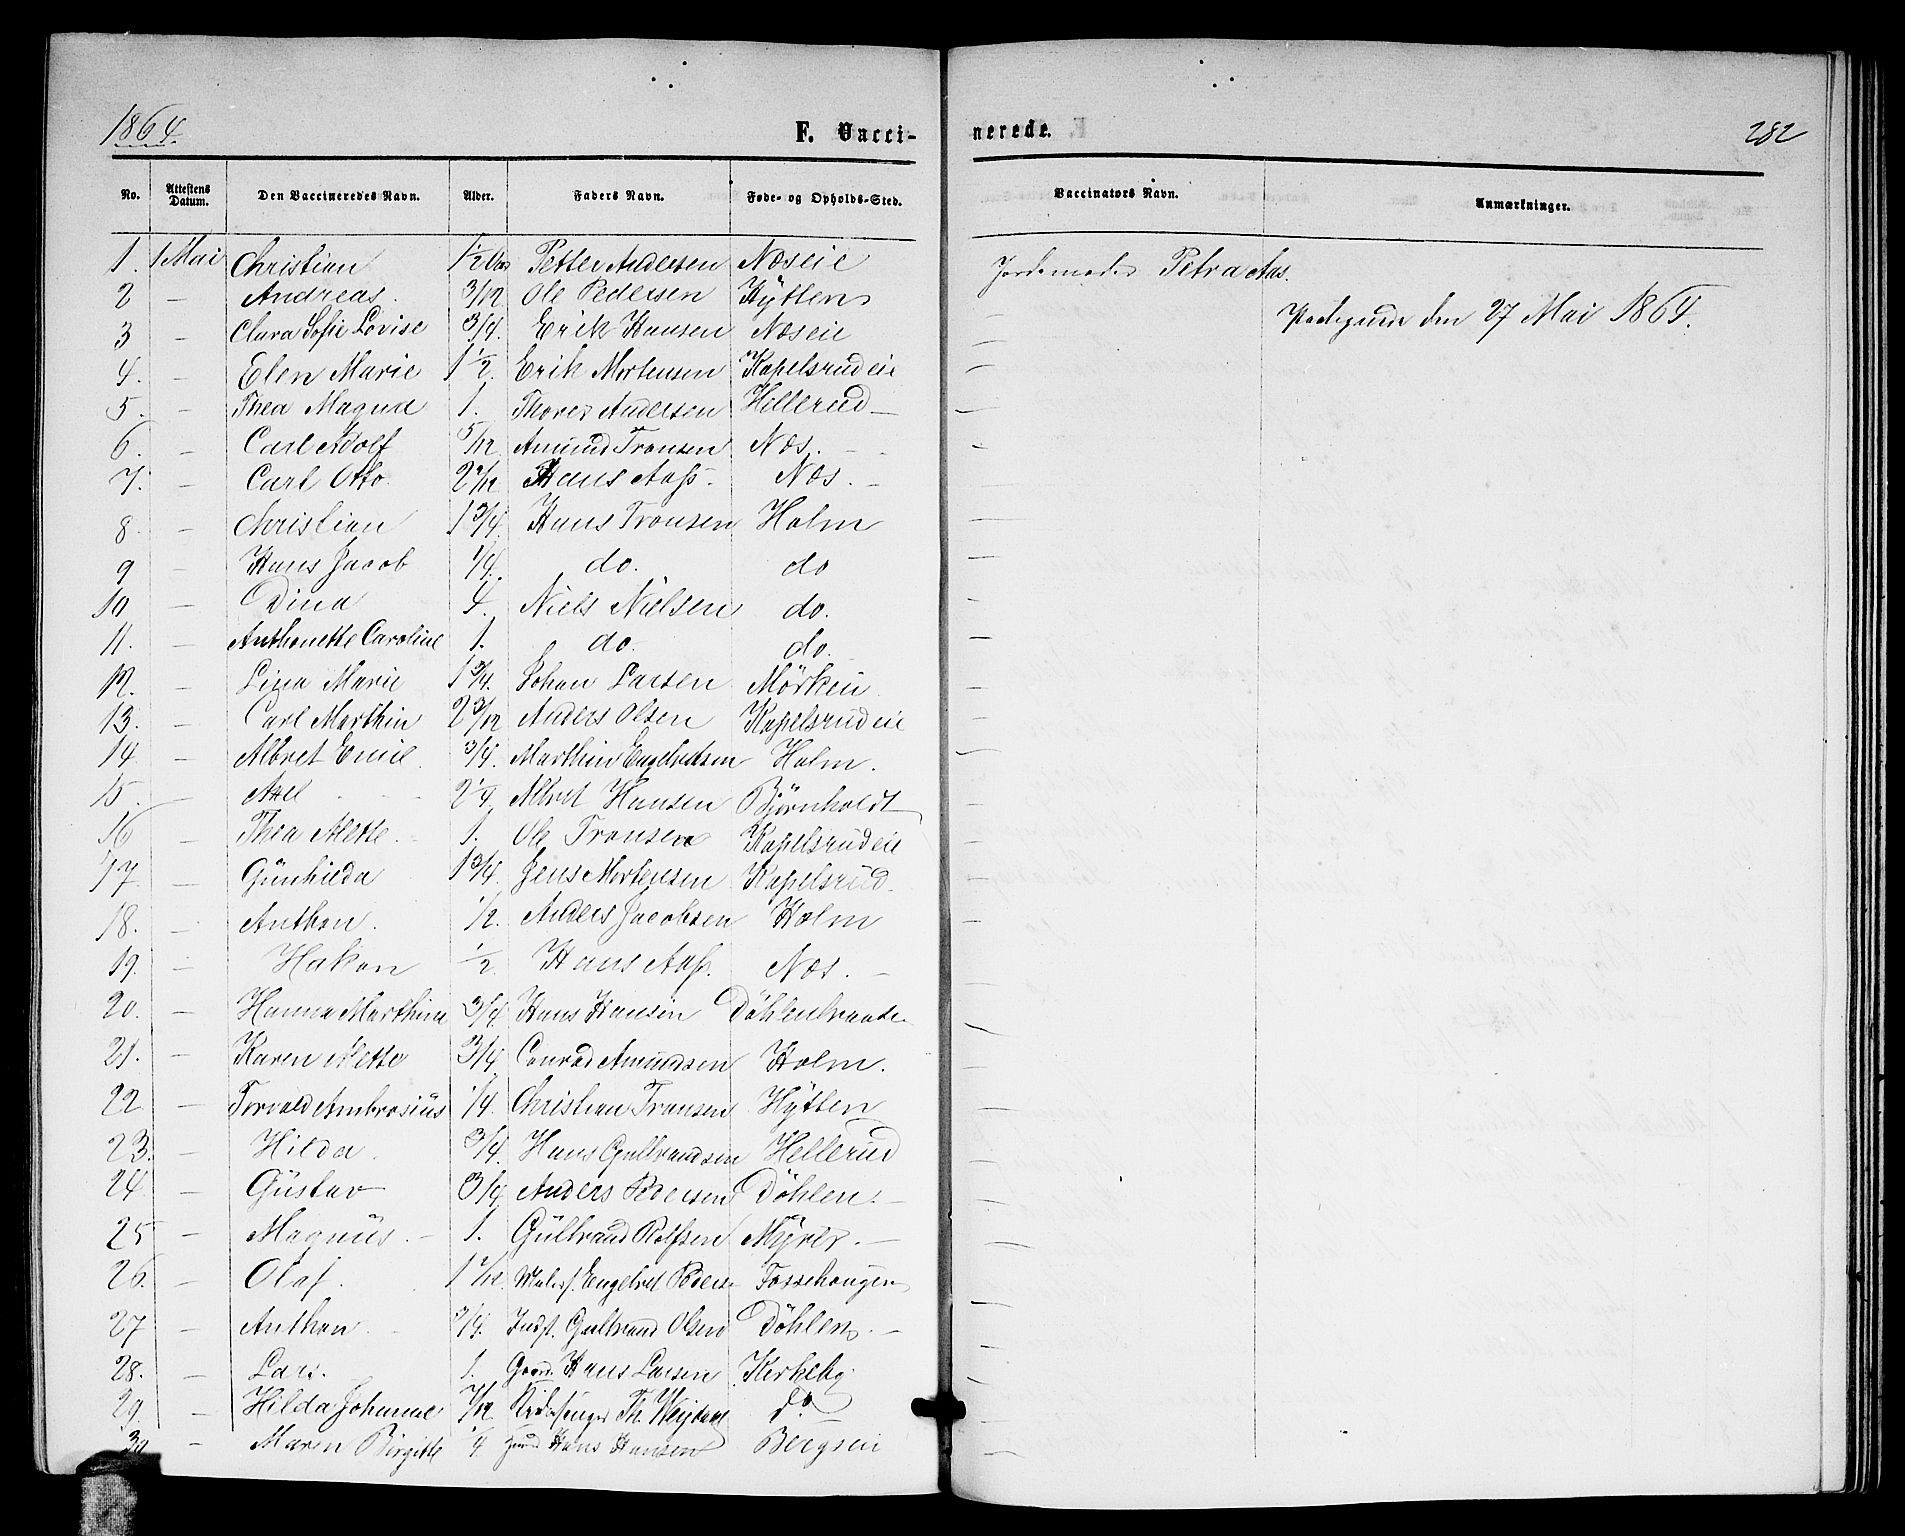 1864. F. Vacci- nerede. 282
No. Attestens Datum. Den Vaccineredes Navn. Alder. Faders Navn. Føde- og Opholds-Sted. Vaccinators Navn. Anmærkninger.
1. 1 Mai Christian 1/2 Aar Petter Andersen Næseie Jordemoder Petra Aas.
2 – Andreas. 3/12 Ole Pedersen Hÿtten –
den 27 Mai 1864.
3 – Clara Sofie Lovise 3/4. Erik Hansen Næseie –
4. – Elen Marie 1 1/2. Erik Mortensen Kapelsrudeie –
5. – Thea Magna 1. Thorer Andersen Hellerud –
6. – Carl Adolf 5/12 Amund Tronsen Næs. –
7. – Carl Otto 2 2/12 Hans Aass. Næs. –
8 – Christian 1 3/4. Hans Tronsen Holm –
9 – Hans Jacob 1/4. do. do –
10 – Dina 4. Niels Nielsen do. –
11. – Anthonette Caroline 1. do. do. –
12. – Lina Marie 1 3/4. Johan Larsen Mörkeie –
13. – Carl Marthin 2 3/12 Anders Olsen Kapelsrudeie –
14 – Albret Emil 3/4. Marthin Engebretsen Holm. –
15. – Axel 2 1/4 Albret Hansen Bjørnholdt –
16 – Thea Mette. 1. Ole Tronsen Kapelsrudeie –
17 – Günhilda 1 3/4. Jens Mortensen Kapelsrud. –
18. – Anthon. 1/2. Anders Jacobsen Holm –
19. – Hakon 1/2 Hans Aass. Næs. –
20. – Hanna Marthine 3/4 Hans Hansen Döhlenbraate. –
21. – Karen Mette 3/4. Conrad Amundsen Holm. –
22 – Torvald Ambrosiüs 1/4. Christian Tronsen Hÿtten –
23. – Hilda. 3/4. Hans Gulbrandsen Hellerud –
24 – Güstav 3/4 Anders Pedersen Döhlen. –
25 – Magnüs. 1. Gülbrand Rolfsen Mÿrer. –
26. – Olaf. 1 2/12. Engebret Peders. Fossehaugen –
27 – Anthon. 3/4. Indst. Gulbrand Olsen Döhlen. –
28. – Lars. 1. Gaard. Hans Larsen Kirkeby –
29. – Hilda Johanne 7/12 Kirkesanger Th. do –
30 – Maren Birgitte 1/4 Hans Hansen Bergseie –